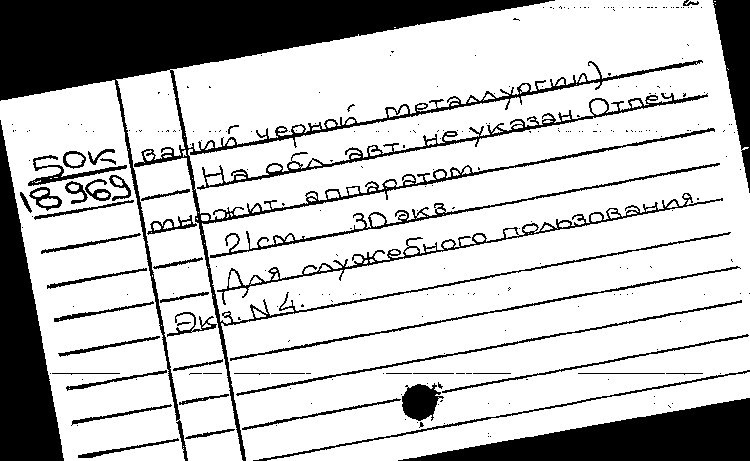 2
50К
18969
ваний черной металлургии).
На обл. авт. не указан. Отпеч.
множит. аппаратом.
21см. 30 экз.
Для служебного пользования.
Экз. N 4.